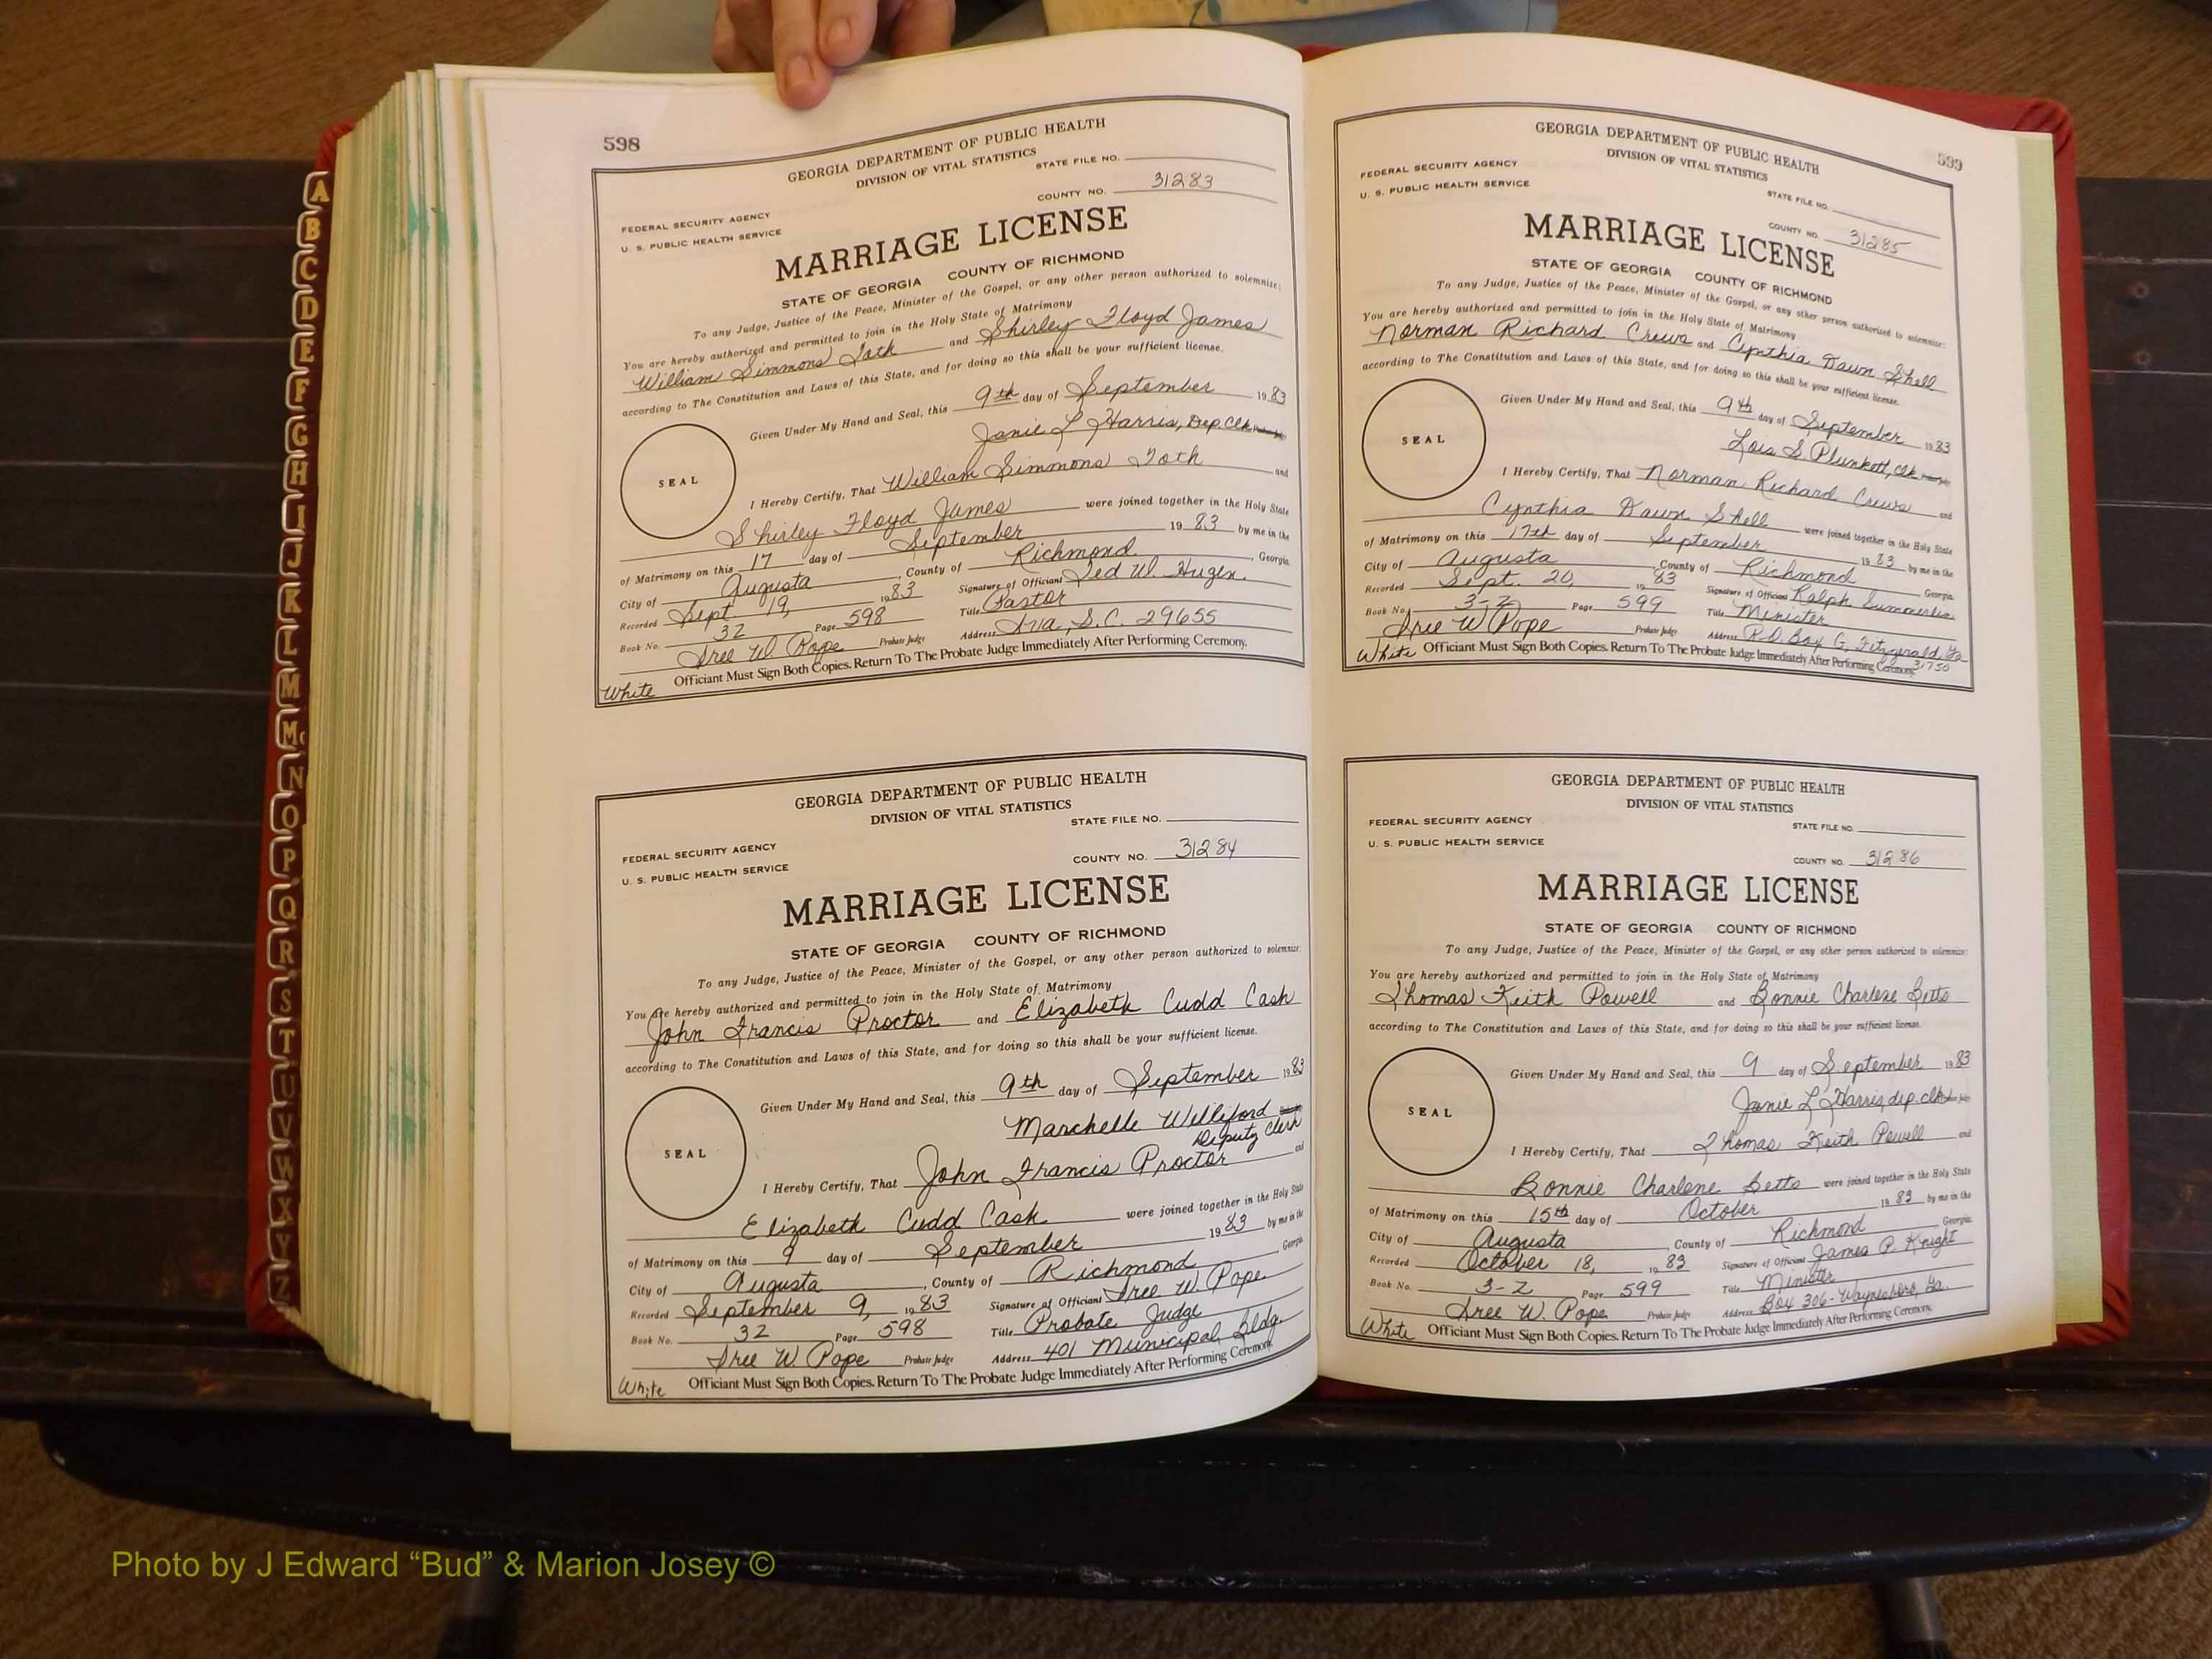 A
B
C
D
E
F
G
H
I
J
K
L
M
Mc
N
O
P
Q
R
S
T
U
V
W
X
Y
Z
598
GEORGIA DEPARTMENT OF PUBLIC HEALTH
DIVISION OF VITAL STATISTICS
STATE FILE NO.
COUNTY NO. 31283
FEDERAL SECURITY AGENCY
U. S. PUBLIC HEALTH SERVICE
MARRIAGE LICENSE
STATE OF GEORGIA COUNTY OF RICHMOND
To any Judge, Justice of the Peace, Minister of the Gospel, or any other person authorized to solemnize:
You are hereby authorized and permitted to join in the Holy State of Matrimony
William Simmons Toth and Shirley Floyd James
according to The Constitution and Laws of this State, and for doing so this shall be your sufficient license.
Given Under My Hand and Seal, this 9th day of September 1983
Janie L Harris, Dep. Clk
SEAL
I Hereby Certify, That William Simmons Toth and
Shirley Floyd James were joined together in the Holy State
of Matrimony on this 17 day of September 1983 by me in the
City of Augusta, County of Richmond, Georgia.
Recorded Sept 19, 1983 Signature of Officiant Ted W.
Book No. 32 Page 598 Title Pastor
Sree W. Pope Probate Judge Address Iva, S.C. 29655
Officiant Must Sign Both Copies. Return To The Probate Judge Immediately After Performing Ceremony.
White
GEORGIA DEPARTMENT OF PUBLIC HEALTH
DIVISION OF VITAL STATISTICS
STATE FILE NO.
COUNTY NO. 31284
FEDERAL SECURITY AGENCY
U. S. PUBLIC HEALTH SERVICE
MARRIAGE LICENSE
STATE OF GEORGIA COUNTY OF RICHMOND
To any Judge, Justice of the Peace, Minister of the Gospel, or any other person authorized to solemnize:
You are hereby authorized and permitted to join in the Holy State of Matrimony
John Francis Proctor and Elizabeth Cudd Cash
according to The Constitution and Laws of this State, and for doing so this shall be your sufficient license.
Given Under My Hand and Seal, this 9th day of September 1983
Marchelle Williford
Deputy Clerk
SEAL
I Hereby Certify, That John Francis Proctor and
Elizabeth Cudd Cash were joined together in the Holy State
of Matrimony on this 9 day of September 1983 by me in the
City of Augusta, County of Richmond Georgia
Recorded September 9, 1983 Signature of Officiant Sree W. Pope
Book No. 32 Page 598 Title Probate Judge
Sree W Pope Probate Judge Address 401 Municipal Bldg.
Officiant Must Sign Both Copies. Return To The Probate Judge Immediately After Performing Ceremony.
White
599
GEORGIA DEPARTMENT OF PUBLIC HEALTH
DIVISION OF VITAL STATISTICS
FEDERAL SECURITY AGENCY
U. S. PUBLIC HEALTH SERVICE
STATE FILE NO.
COUNTY NO. 31285
MARRIAGE LICENSE
STATE OF GEORGIA COUNTY OF RICHMOND
To any Judge, Justice of the Peace, Minister of the Gospel, or any other person authorized to solemnize:
You are hereby authorized and permitted to join in the Holy State of Matrimony
Norman Richard Crews and Cynthia Dawn Shell
according to The Constitution and Laws of this State, and for doing so this shall be your sufficient license.
Given Under My Hand and Seal, this 9th day of September 1983
Lois S Plunkett, Clk
SEAL
I Hereby Certify, That Norman Richard Crews and
Cynthia Dawn Shell were joined together in the Holy State
of Matrimony on this 17th day of September 1983 by me in the
City of Augusta, County of Richmond Georgia.
Recorded Sept. 20, 1983 Signature of Officiant Ralph Summerlin
Book No. 3-2 Page 599 Title Minister
Sree W Pope Probate Judge Address P.O. Box G, Fitzgerald, Ga
31750
Officiant Must Sign Both Copies. Return To The Probate Judge Immediately After Performing Ceremony.
White
GEORGIA DEPARTMENT OF PUBLIC HEALTH
DIVISION OF VITAL STATISTICS
FEDERAL SECURITY AGENCY
STATE FILE NO.
U. S. PUBLIC HEALTH SERVICE
COUNTY NO. 31286
MARRIAGE LICENSE
STATE OF GEORGIA COUNTY OF RICHMOND
To any Judge, Justice of the Peace, Minister of the Gospel, or any other person authorized to solemnize:
You are hereby authorized and permitted to join in the Holy State of Matrimony
Thomas Keith Powell and Bonnie Charlene Betts
according to The Constitution and Laws of this State, and for doing so this shall be your sufficient license.
Given Under My Hand and Seal, this 9 day of September 1983
Janie L Harris, dep. clk
SEAL
I Hereby Certify, That Thomas Keith Powell and
Bonnie Charlene Betts were joined together in the Holy State
of Matrimony on this 15th day of October 1983 by me in the
City of Augusta, County of Richmond, Georgia.
Recorded October 18, 1983 Signature of Officiant James P. Knight
Book No. 3-2 Page 599 Title Minister
Sree W. Pope Probate Judge Address Box 306-Waynesboro, Ga.
Officiant Must Sign Both Copies. Return To The Probate Judge Immediately After Performing Ceremony.
White
Photo by J Edward “Bud” & Marion Josey ©